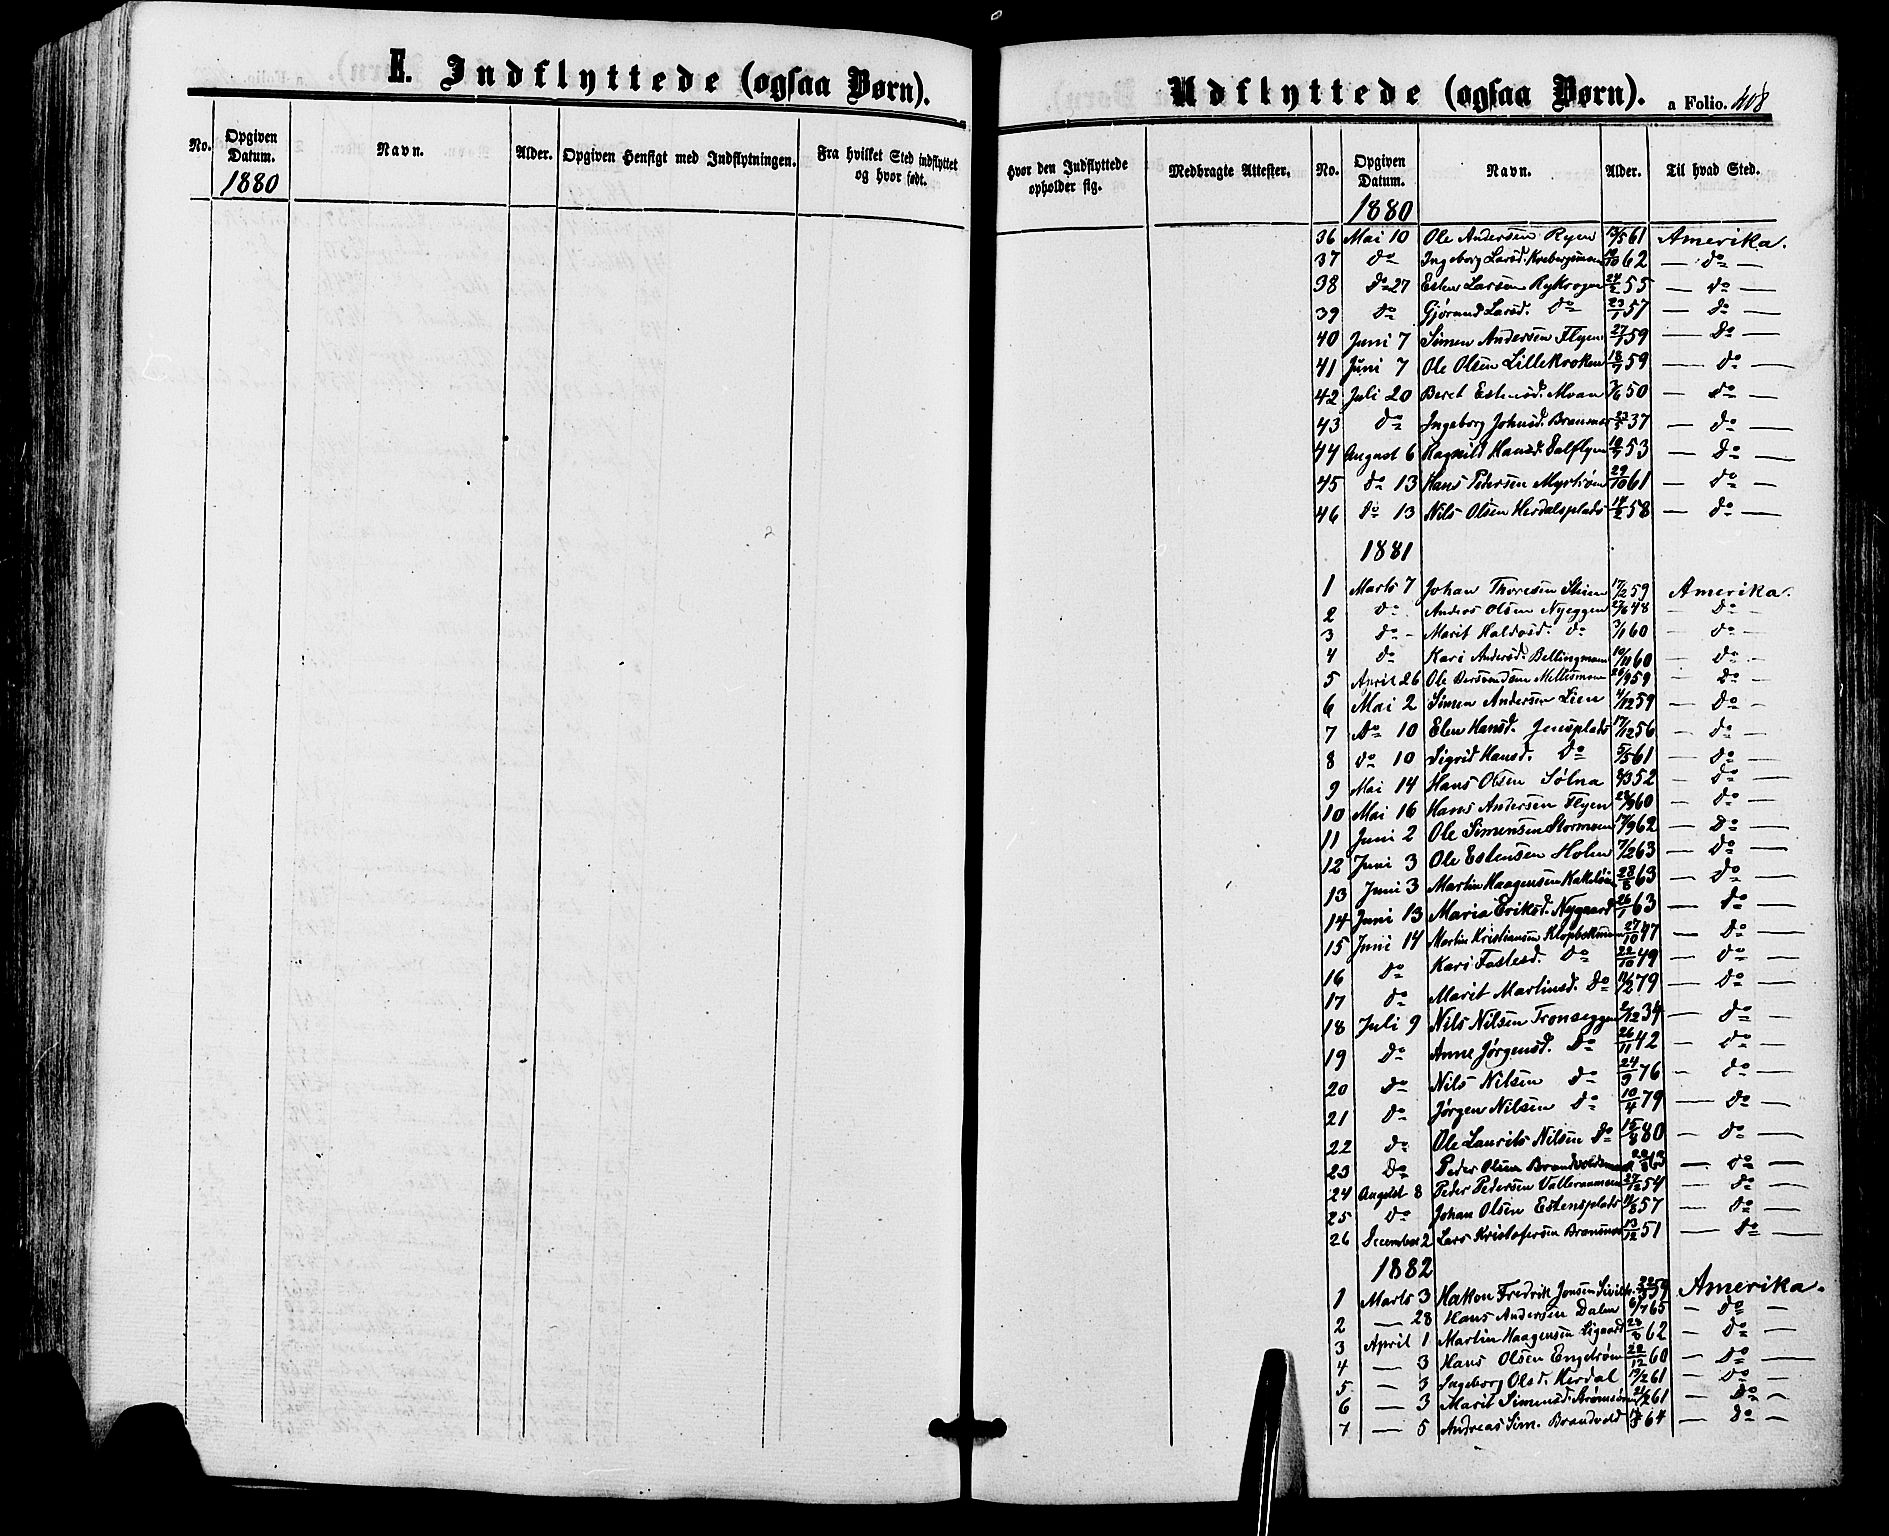 E. Indflyttede (ogsaa Børn).
No. Opgiven Datum. Navn. Alder. Opgiven Hensigt med Indflytningen. Fra hvilket Sted indflyttet og hvor født.
1880
Udflyttede (ogsaa Børn). a Folio. 408
Hvor den Indflyttede opholder sig. Medbragte Attester. No. Opgiven Datum. Navn. Alder. Til hvad Sted.
1880
36 Mai 10 Ole Andersen Ryen 13/5 61 Amerika.
37 do Ingeborg Larsd. 62 — do —
38 do 27 Esten Larsen 24/2 55 — do —
39 do Gjørand Larsd. do 23/1 57 — do —
40 Juni 7 Simen Andersen Flyen 27/1 59 — do —
41 Juni 7 Ole Olsen Lillekroken 18/7 59 — do —
42 Juli 20 Beret Estensd. Moan 50 — do —
43 do Ingeborg Johnsd. 37 — do —
44 August 6 Ragnild Hansd. 53 — do —
45 do 13 Hans Pedersen 29/10 61 — do —
46 do 13 Nils Olsen Herdalsplads 14/2 58 — do —
1881
1 Marts 7 Johan Thoresen Stuen 17/2 59 Amerika.
2 do Andros Olsen Nyeggen 48 — do —
3 do Marit Haldosd. do 3/1 60 — do —
4 do Kari Andersd. Bellingmoen 10/11 60 — do —
5 April 26 Ole 59 — do —
6 Mai 2 Simen Andersen Lien 4/12 59 — do —
7 do 10 Elen Hansd. Jensplads 17/12 56 — do —
8 do 10 Sigrid Hansd. do 5/5 61 — do —
9 Mai 14 Hans Olsen Sølna 52 — do —
10 Mai 16 Hans Andersen Flyen 60 — do —
11 Juni 2 Ole Simensen Stormoen 17/9 62 — do —
12 Juni 3 Ole Estensen Holen 7/2 63 — do —
13 Juni 3 Martin Haagensen 28/8 63 — do —
14 Juni 13 Maria Eriksd. Nygaard 26/1 63 — do —
15 Juni 14 Martin Kristiansen 27/10 47 — do —
16 do Kari Fastesd. do 22/10 49 — do —
17 do Marit Martinsd. do 79 — do —
18 Juli 9 Nils Nilsen Tronseggen 2/12 34 — do —
19 do Anne Jørgensd. do 26/11 42 — do —
20 do Nils Nilsen do 24/9 76 — do —
21 do Jørgen Nilsen do 10/4 79 — do —
22 do Ole Laurits Nilsen do 15/8 80 — do —
23 do Peder Olsen Brandvoldmoen 63 — do —
24 August 8 Peder Pedersen 54 — do —
25 do Johan Olsen Estensplads 57 — do —
26 December 2 Lars Kristofersen 13/12 51 — do —
1882
1 Marts 3 Hakon Fredrik Jonsen 59 Amerika.
2 — 28 Hans Andersen Dalen 6/7 65 — do —
3 April 1 Martin Haagensen 28/8 62 — do —
4 — 3 Hans Olsen Engstrøm 28/12 60 — do —
5 — 3 Ingeborg Olsd. Herdal 61 — do —
6 — 3 Marit Simensd. 61 — do —
7 — 5 Andreas Sim. Brandvold 64 — do —